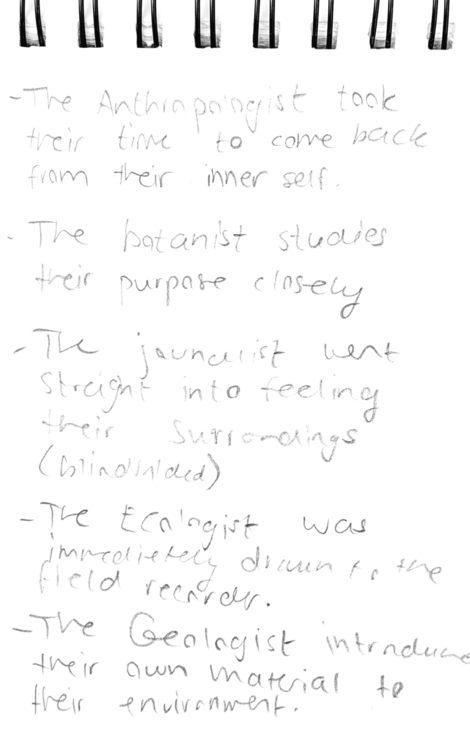 - The Anthropologist took
their time to come back
from their inner self.
- The botanist studies
their purpose closely
- The jounalist went
streight into feeling
their surrondings
(blindfolded)
- The Ecologist was
immedietely drawn to the
field recorder.
- The Geologist introduce
their own material to
their environment.